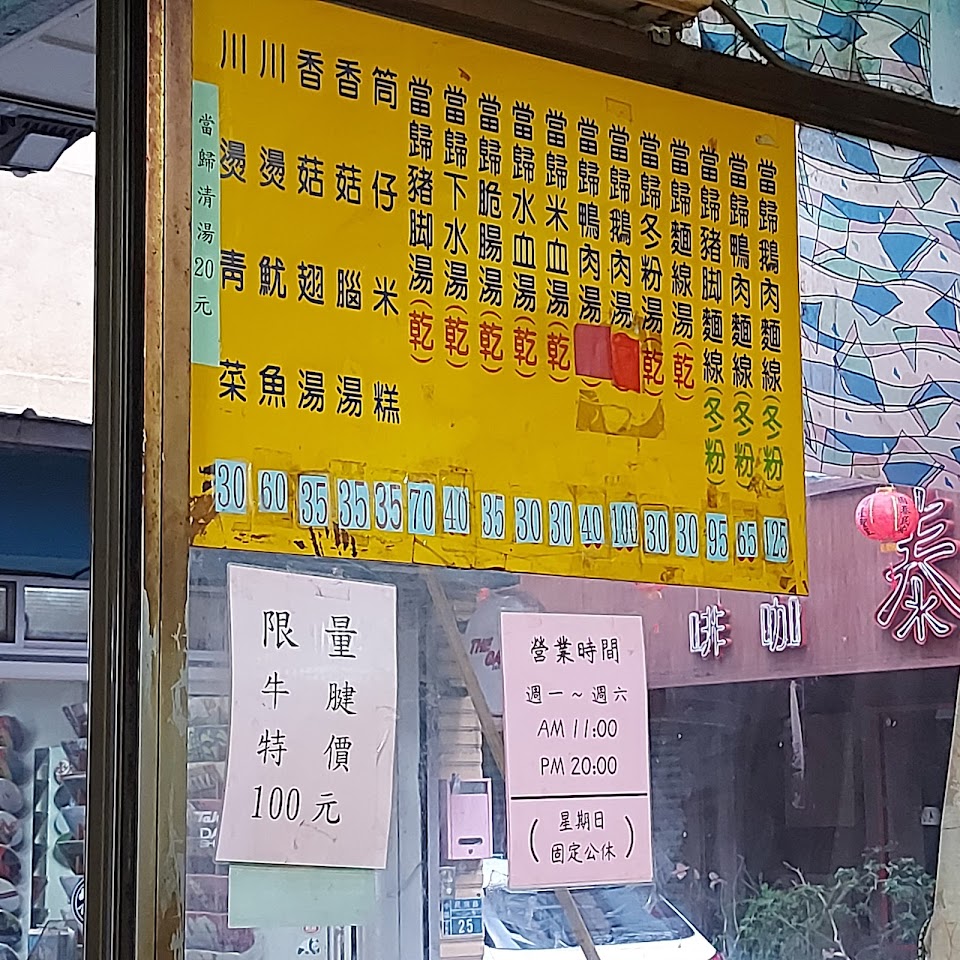 當歸鵝肉麵線(冬粉) 125
當歸鴨肉麵線(冬粉) 65
當歸豬脚麵線(冬粉) 95
當歸麵線湯(乾) 30
當歸冬粉湯(乾) 30
當歸鵝肉湯 100
當歸鴨肉湯 40
當歸米血湯(乾) 30
當歸水血湯(乾) 30
當歸脆腸湯(乾) 35
當歸下水湯(乾) 40
當歸豬脚湯(乾) 70
筒仔米糕 35
香菇腦湯 35
香菇翅湯 35
川燙魷魚 60
川燙青菜 30
當歸清湯20元
限量
牛腱
特價
100元
營業時間
週一~週六
AM 11:00
PM 20:00
(星期日
固定公休)
啡咖
泰
25